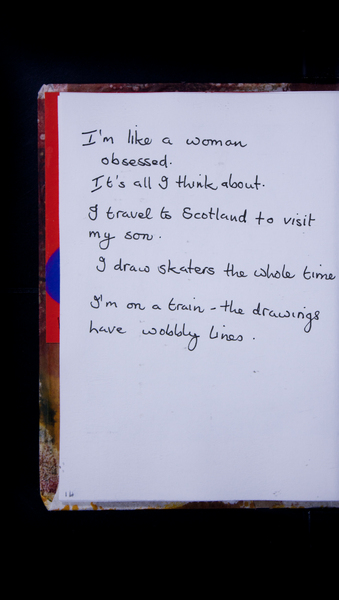 I'm like a woman
obsessed.
It's all I think about.
I travel to Scotland to visit
my son.
I draw skaters the whole time
I'm on a train - the drawings
have wobbly lines.